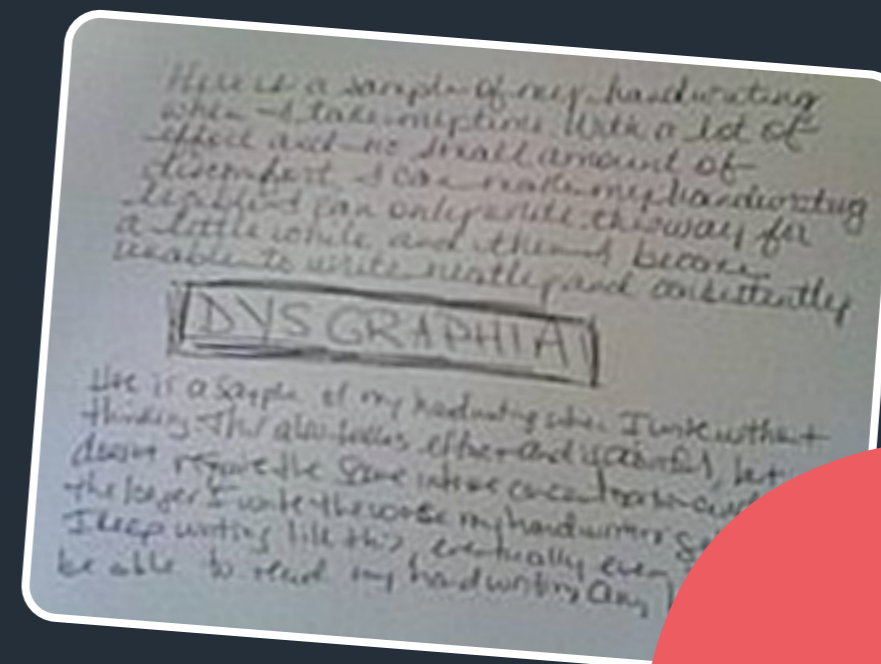 Here is a sample of my handwriting
when I take my time. With a lot of
effort and no small amount of
discomfort I can make my handwriting
legible. I can only write this way for
a little while and then I become
unable to write neatly and consistently
DYSGRAPHIA
Here is a sample of my handwriting when I write without
thinking. This also takes effort and is painful, but
doesnt require the same intense concentration and
the longer I write the worse my handwriting
I keep writing like this, eventually even
be able to read my handwriting any